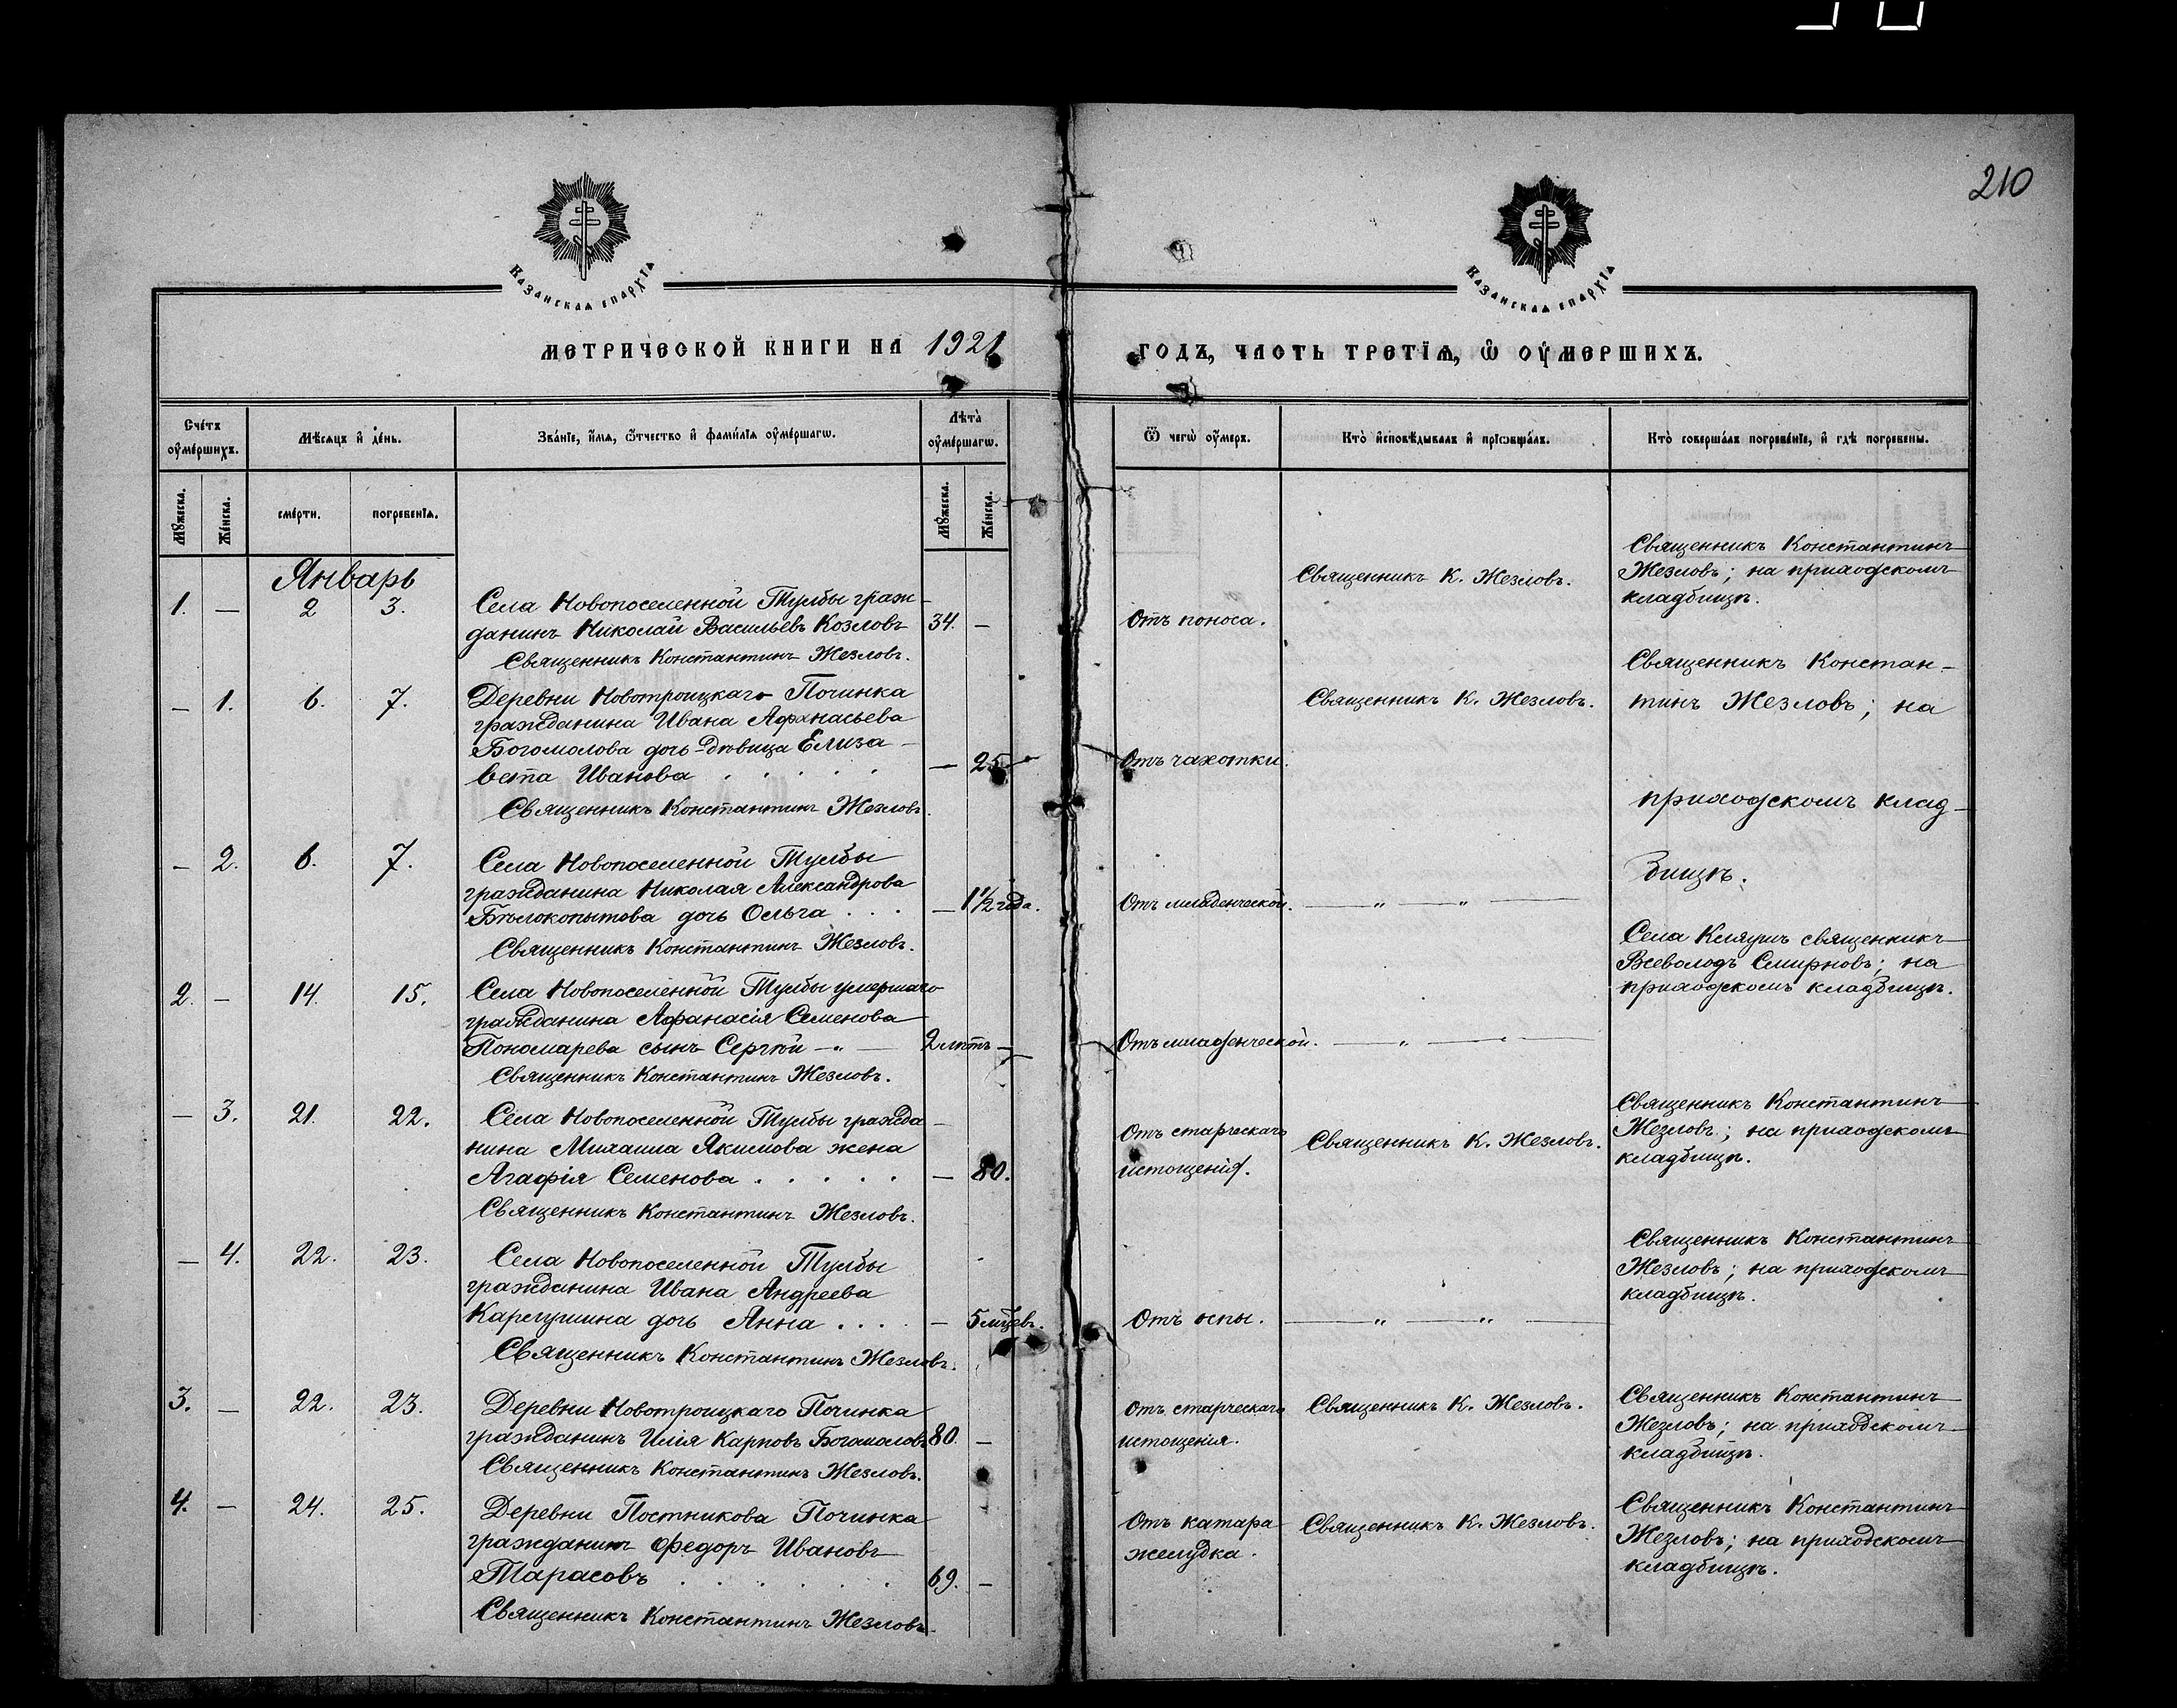 210
Казанская епархїа
Казанская епархїа
МЕТРИЧЕСКОЙ КНИГИ НА 1921
ГОДЪ, ЧАСТЬ ТРЕТЇѦ, Ѽ ОУМЕРШИХЪ.
Счетъ оумершихъ.
Мѣсяцъ и день.
Званїе, имя, отчество и фамилїя оумершагѡ.
Лѣта оумершагѡ.
Ѿ чегѡ оумеръ.
Кто исповѣдывалъ и прїѡбщалъ.
Кто совершалъ погребенїе, и гдѣ погребены.
Мꙋжеска.
Женска.
смерти.
погребенїя.
Мꙋжеска.
Женска.
Январь
1. — 2 3.
Села Новопоселенной Тулбы граж-
данинъ Николай Васильевъ Козловъ 34. —
Священникъ Константинъ Жезловъ.
Отъ поноса.
Священникъ К. Жезловъ.
Священникъ Константинъ
Жезловъ; на приходскомъ
кладбищѣ.
— 1. 6. 7.
Деревни Новотроицкаго Починка
гражданина Ивана Афанасьева
Богомолова дочь-дѣвица Елиза-
вета Иванова . . . . . — 25
Священникъ Константинъ Жезловъ.
Отъ чахотки.
Священникъ К. Жезловъ.
Священникъ Констан-
тинъ Жезловъ; на
приходскомъ клад-
бищѣ.
— 2. 6. 7.
Села Новопоселенной Тулбы
гражданина Николая Александрова
Бѣлокопытова дочь Ольга . . . — 1 1/2 года.
Священникъ Константинъ Жезловъ.
Отъ младенческой. — „ — „ —
2. — 14. 15.
Села Новопоселенной Тулбы умершаго
гражданина Афанасія Семенова
Пономарева сынъ Сергѣй — „ — 2 лѣтъ —
Священникъ Константинъ Жезловъ.
Отъ младенческой. — „ — „ —
Села Кляушъ священникъ
Всеволодъ Смирновъ; на
приходскомъ кладбищѣ.
— 3. 21. 22.
Села Новопоселенной Тулбы гражда-
нина Михаила Якимова жена
Агафія Семенова . . . . . — 80.
Священникъ Константинъ Жезловъ.
Отъ старческаго
истощенія.
Священникъ К. Жезловъ.
Священникъ Константинъ
Жезловъ; на приходскомъ
кладбищѣ.
— 4. 22. 23.
Села Новопоселенной Тулбы
гражданина Ивана Андреева
Каргушина дочь Анна . . . . — 5 мѣсцевъ.
Священникъ Константинъ Жезловъ.
Отъ оспы. — „ — „ —
Священникъ Константинъ
Жезловъ; на приходскомъ
кладбищѣ.
3. — 22. 23.
Деревни Новотроицкаго Починка
гражданинъ Илія Карповъ Богомоловъ 80. —
Священникъ Константинъ Жезловъ.
Отъ старческаго
истощенія.
Священникъ К. Жезловъ.
Священникъ Константинъ
Жезловъ; на приходскомъ
кладбищѣ.
4. — 24. 25.
Деревни Постникова Починка
гражданинъ Федоръ Ивановъ
Тарасовъ . . . . . . 69. —
Священникъ Константинъ Жезловъ.
Отъ катара
желудка.
Священникъ К. Жезловъ.
Священникъ Константинъ
Жезловъ; на приходскомъ
кладбищѣ.